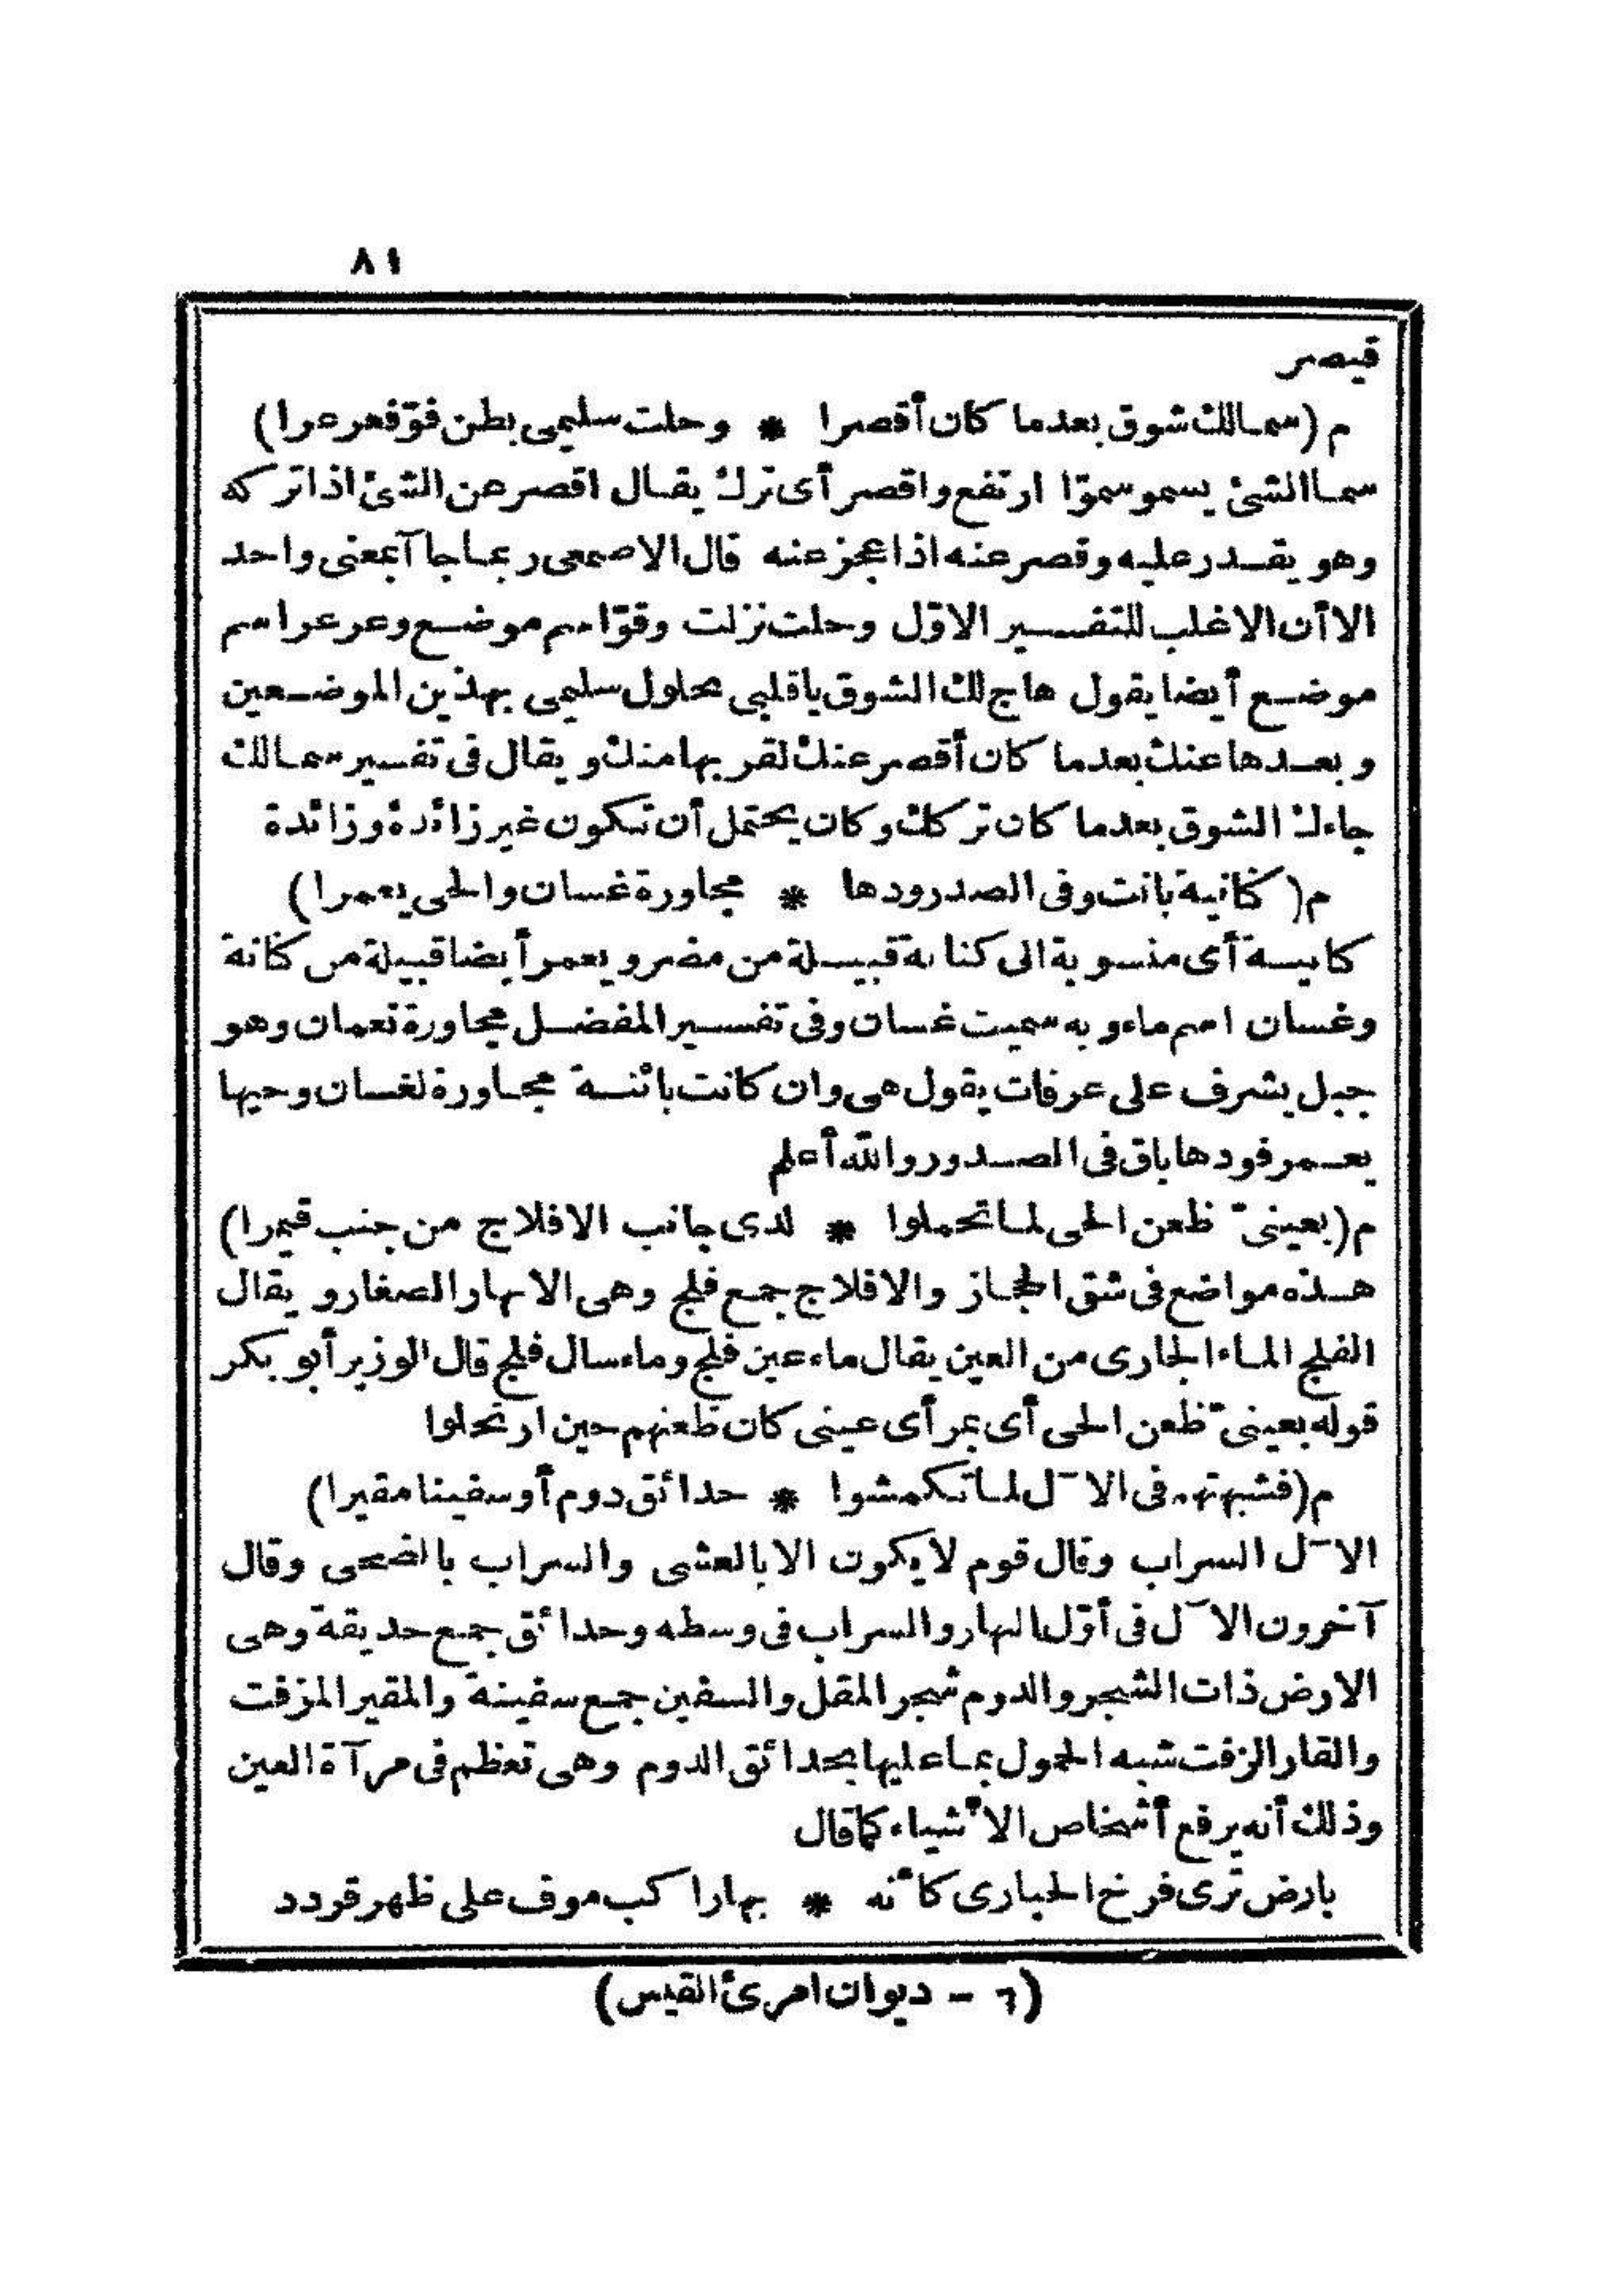 ٨١
قيصر
م (سمالك شوق بعدما كان أقصرا * وحلت سليمى بطن فوّ فعرعرا)
سما الشئ يسمو سموّا ارتفع واقصر أى ترك يقال اقصر عن الشئ اذا تركه
وهو يقدر عليه وقصر عنه اذا عجز عنه قال الاصمعى ربما جا آ بمعنى واحد
الا أن الاغلب للتفسير الاوّل وحلت نزلت وقوّ اسم موضع وعرعر اسم
موضع أيضا يقول هاج لك الشوق يا قلبى حلول سليمى بهذين الموضعين
وبعدها عنك بعدما كان أقصر عنك لقربها منك ويقال فى تفسير سمالك
جاءك الشوق بعدما كان تركك وكان يحتمل أن تكون غير زائدة وزائدة
م (كانية بانت وفى الصدر ودها * مجاورة غسان والحى يعمرا)
كانيسة أى منسوبة الى كنانة قبيلة من مضر ويعمر أيضا قبيلة من كنانة
وغسان اسم ماء وبه سميت غسان وفى تفسير المفضل مجاورة نعمان وهو
جبل يشرف على عرفات يقول هى وان كانت بائنة مجاورة لغسان وحيها
يعمر فودها باق فى الصدور والله أعلم
م (بعينىّ ظعن الحى لما تحملوا * لدى جانب الافلاج من جنب قيمرا)
هذه مواضع فى شق الحجاز والافلاج جمع فلج وهى الانهار الصغار ويقال
الفلج الماء الجارى من العين يقال ماء عين فلج وماء سال فلج قال الوزير أبو بكر
قوله بعينىّ ظعن الحى أى بمرأى عينى كان ظعنهم حين ارتحلوا
م (فشبهتهم فى الآل لما تكمشوا * حدائق دوم أو سفينا مقيرا)
الآل السراب وقال قوم لا يكون الا بالعشى والسراب بالضحى وقال
آخرون الآل فى أوّل النهار والسراب فى وسطه وحدائق جمع حديقة وهى
الارض ذات الشجر والدوم شجر المقل والسفين جمع سفينة والمقير المزفت
والقار الزفت شبه الحمول بما عليها بحدائق الدوم وهى تعظم فى مرآة العين
وذلك أنه يرفع أشخاص الأشياء كما قال
بارض ترى فرخ الحبارى كأنه * بها راكب موف على ظهر قردد
(٦ - ديوان امرئ القيس)